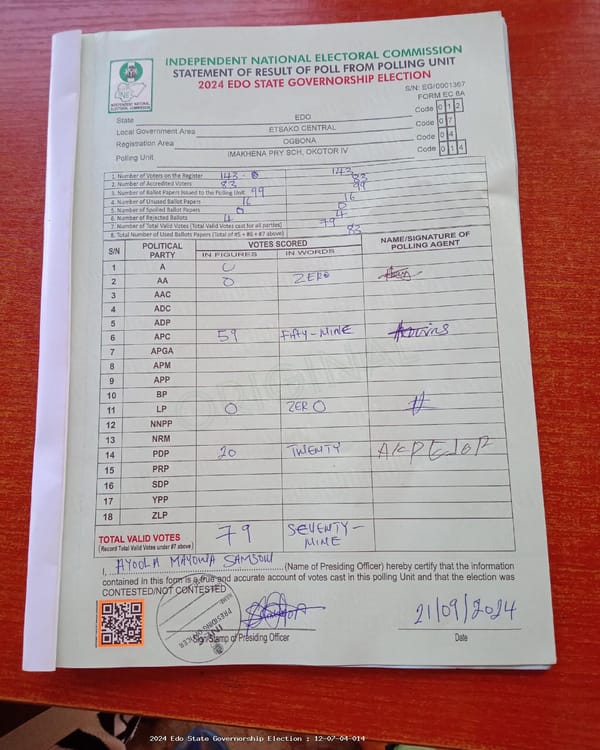 INDEPENDENT NATIONAL ELECTORAL COMMISSION
STATEMENT OF RESULT OF POLL FROM POLLING UNIT
2024 EDO STATE GOVERNORSHIP ELECTION
INDEPENDENT NATIONAL ELECTORAL COMMISSION
S/N: EG/0001367
FORM EC 8A
State EDO Code 1 2
Local Government Area ETSAKO CENTRAL Code 0 7
Registration Area OGBONA Code 0 4
Polling Unit IMAKHENA PRY SCH, OKOTOR IV Code 0 1 4
1. Number of Voters on the Register 143 143
2. Number of Accredited Voters 83 83
3. Number of Ballot Papers Issued to the Polling Unit 99 99
4. Number of Unused Ballot Papers 16 16
5. Number of Spoiled Ballot Papers 0 0
6. Number of Rejected Ballots 4 4
7. Number of Total Valid Votes (Total Valid Votes cast for all parties) 79
8. Total Number of Used Ballots Papers (Total of #5 + #6 + #7 above) 83
S/N POLITICAL PARTY VOTES SCORED NAME/SIGNATURE OF POLLING AGENT
IN FIGURES IN WORDS
1 A 0
2 AA 0 ZERO
3 AAC
4 ADC
5 ADP
6 APC 59 FIFTY-NINE
7 APGA
8 APM
9 APP
10 BP
11 LP 0 ZERO
12 NNPP
13 NRM
14 PDP 20 TWENTY
15 PRP
16 SDP
17 YPP
18 ZLP
TOTAL VALID VOTES 79 SEVENTY-NINE
(Record Total Valid Votes under #7 above)
I, AYOOLA MAYOWA SAMSON (Name of Presiding Officer) hereby certify that the information
contained in this form is a true and accurate account of votes cast in this polling Unit and that the election was
CONTESTED/NOT CONTESTED
21/09/2024
Sign/Stamp of Presiding Officer Date
PRESIDING OFFICER
ORIGINAL
2024 Edo State Governorship Election : 12-07-04-014